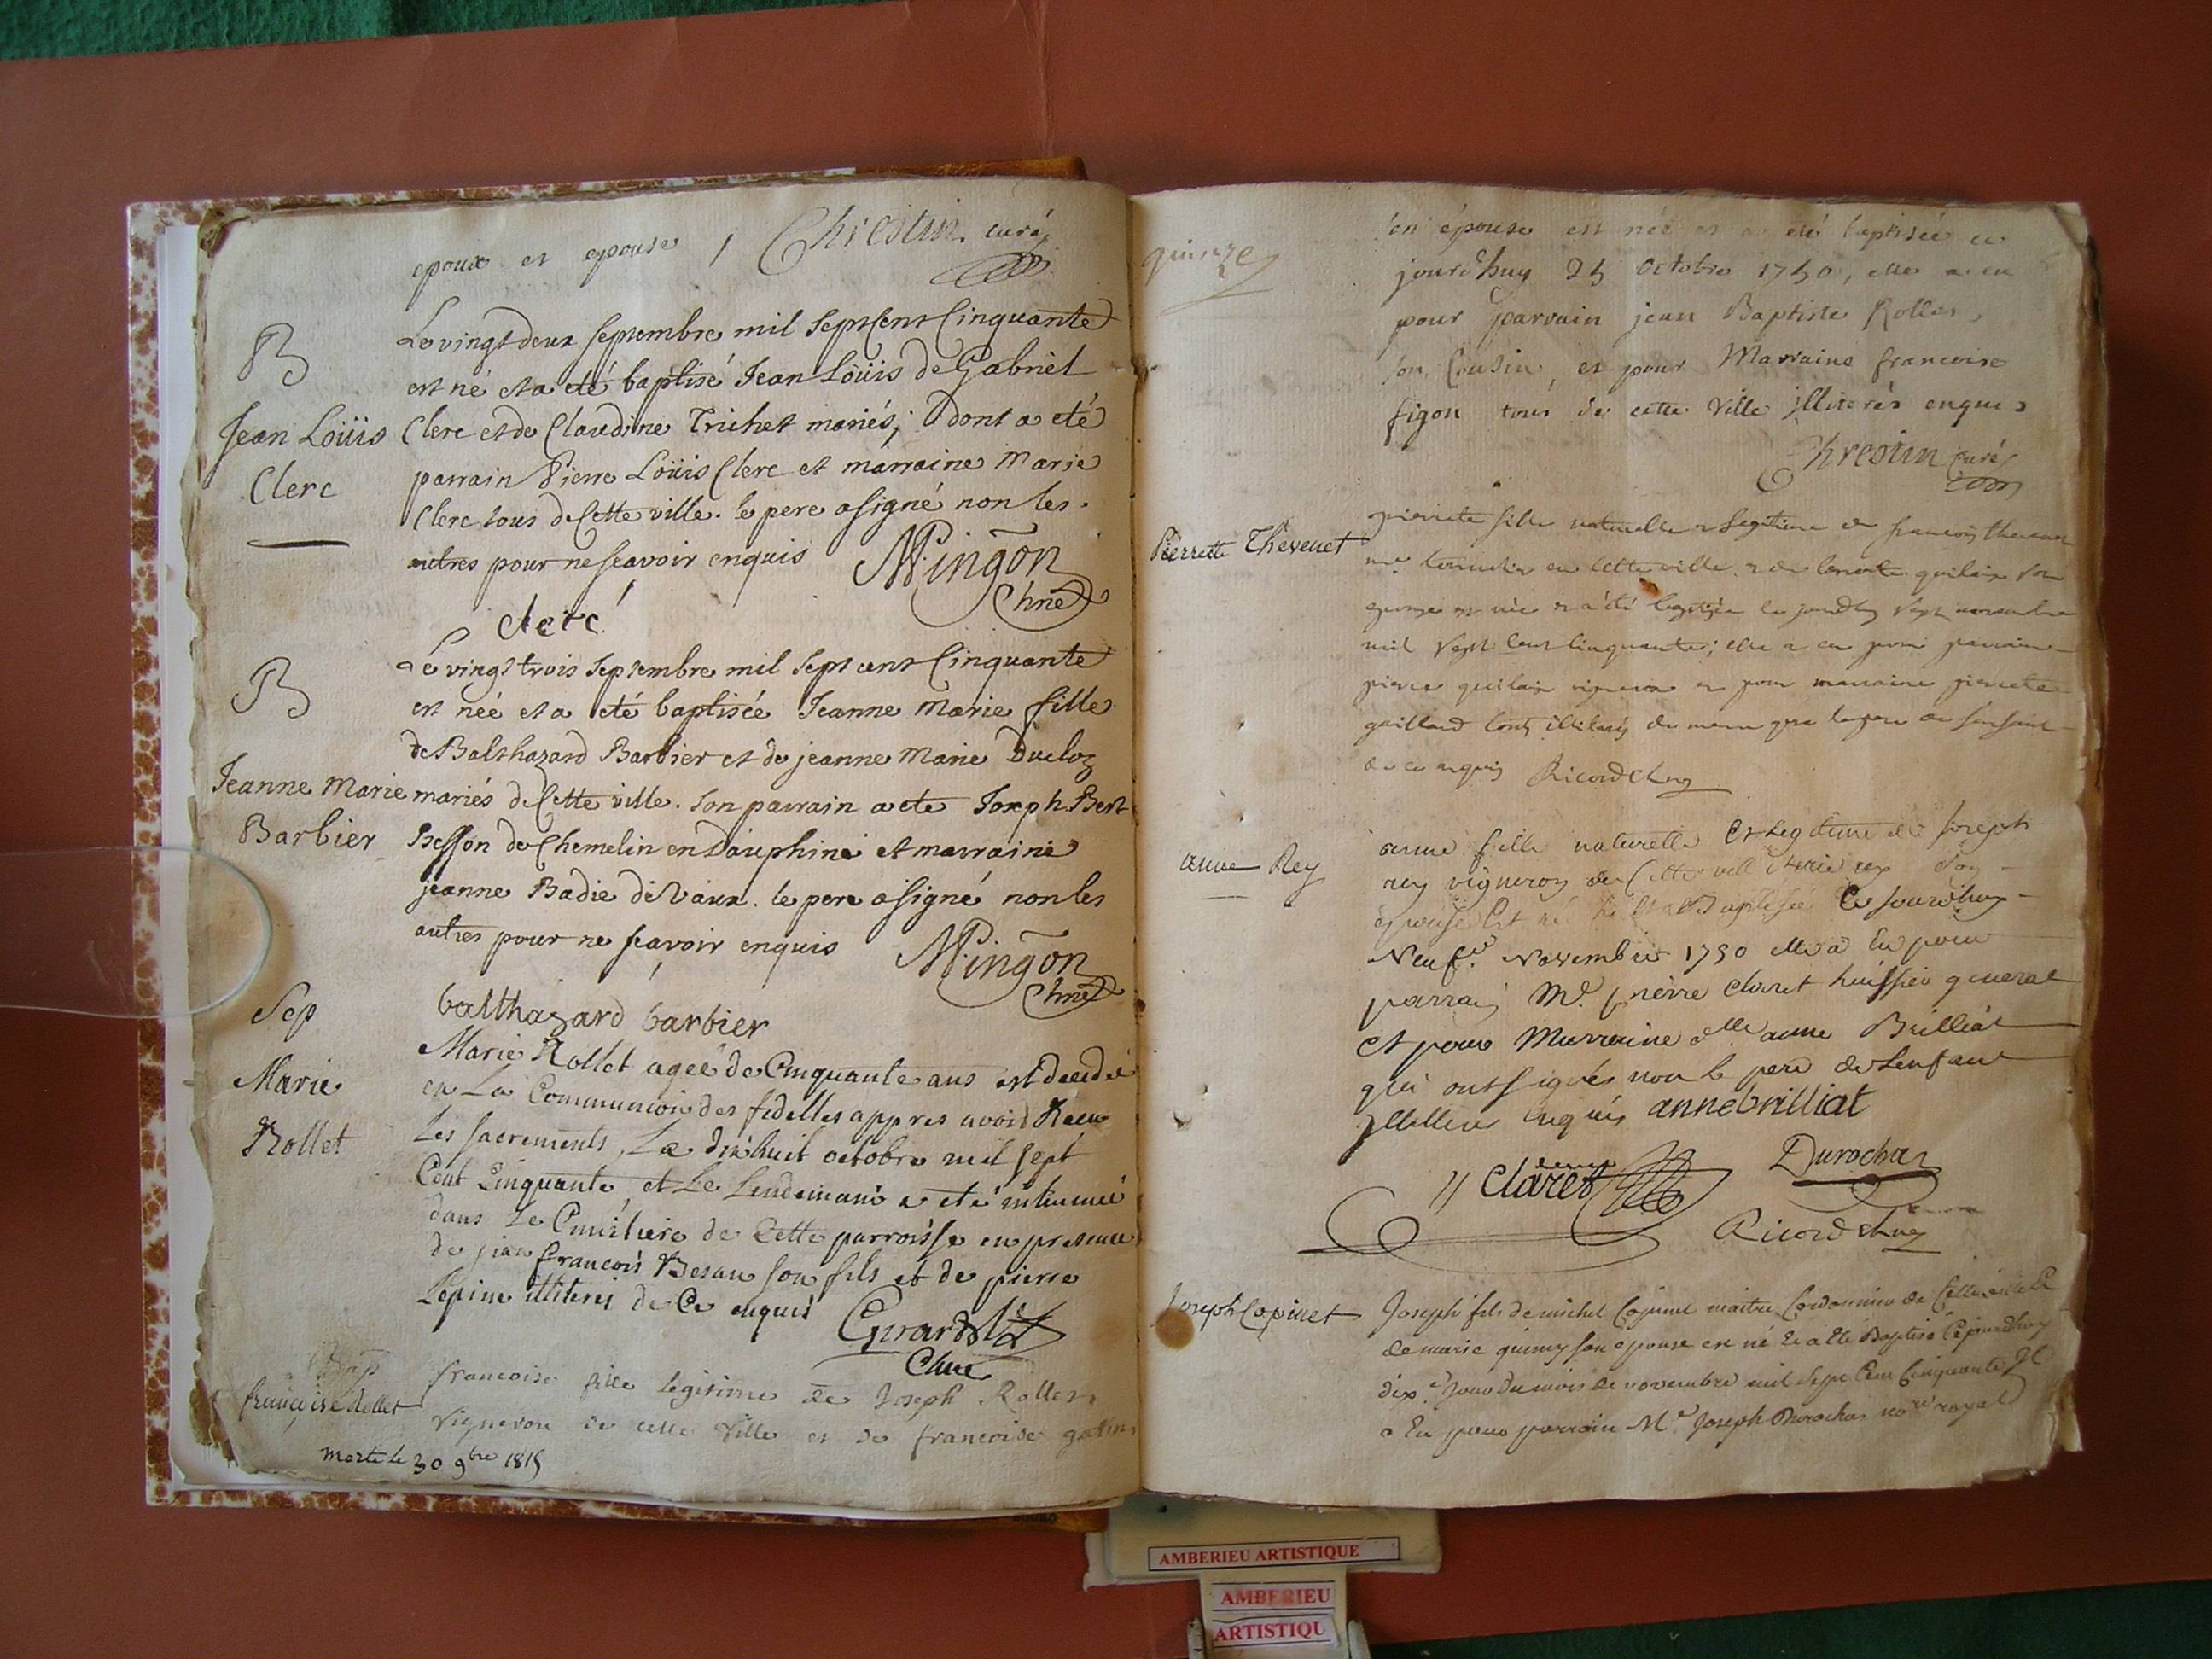 epoux et epouse / Chrestin curé
B
Le vingt deux septembre mil sept Cent Cinquante
est né et a eté baptisé Jean Loüis de Gabriel
Jean Loüis
Clerc et de Claudine Trichet mariés; dont a eté
Clerc
parrain Pierre Loüis Clerc et marraine Marie
Clerc tous de Cette ville. le pere a signé non les
autres pour ne scavoir enquis MPingon
Clerc
B
Le vingt trois septembre mil sept cent Cinquante
est née et a eté baptisée Jeanne Marie fille
de Balthazard Barbier et de jeanne Marie Ducloz
Jeanne Marie
mariés de Cette ville. son parrain a ete Joseph Bert
Barbier
Besson de Chemelin en Dauphiné et marraine
jeanne Badie de Vaux. le pere a signé non les
autres pour ne scavoir enquis MPingon
balthazard barbier
Sep
Marie
Rollet
Marie Rollet agée de Cinquante ans est decedée
en La Communion des fidelles appres avoir Receu
Les sacrements, Le dixhuit octobre mil sept
Cent Cinquante, et Le Lendemain a eté inhumée
dans Le Cimetiere de Cette parroisse en presence
de jean francois Besan son fils et de pierre
Lepine illiterés de Ce enquis Girard
Bap
francoise Rollet
francoise fille legitime de Joseph Rollet
Vigneron de cette Ville et de francoise
morte le 30 9bre 1815
quinze
son épouse est née et a eté baptisée ce
jourd'huy 25 Octobre 1750, elle a eu
pour parrain jean Baptiste Rollet,
son Cousin, et pour Marraine francoise
figon tous de cette Ville illiterés enquis
Chrestin Curé
Pierrette Thevenet
pierrete fille naturelle et Legitime de francois thevenet
me tonnelier en Cette ville et de quilain son
epouse est née et a été baptisée le jourdhuy sept novembre
mil sept Cent Cinquante; elle a eu pour parrain
pierre quilain vigneron et pour marraine pierrete
gaillard tous illiterés de meme que le pere de l'enfant
de ce enquis Ricord
anne Rey
anne fille naturelle Et Legitime de Joseph
rey vigneron de Cette ville et rey son
epouse Est née Et a eté Baptisée Ce Jourdhuy
Neufe Novembre 1750 elle a Eu pour
parrain Me pierre Claret huissier general
et pour Marraine dlle anne Brilliat
qui ont signés non le pere de Lenfant
illiteré enquis anne brilliat
Claret
Durochat
Ricord
Joseph Copinet
Joseph fils de michel Copinet maitre Cordonnier de Cette ville Et
de marie quiny son epouse est né Et a Eté Baptisé Cejourdhuy
dixe Jour du mois de novembre mil sept Cent Cinquante Il
a Eu pour parrain Me Joseph Durochat nore royal
AMBERIEU ARTISTIQUE
AMBERIEU
ARTISTIQU